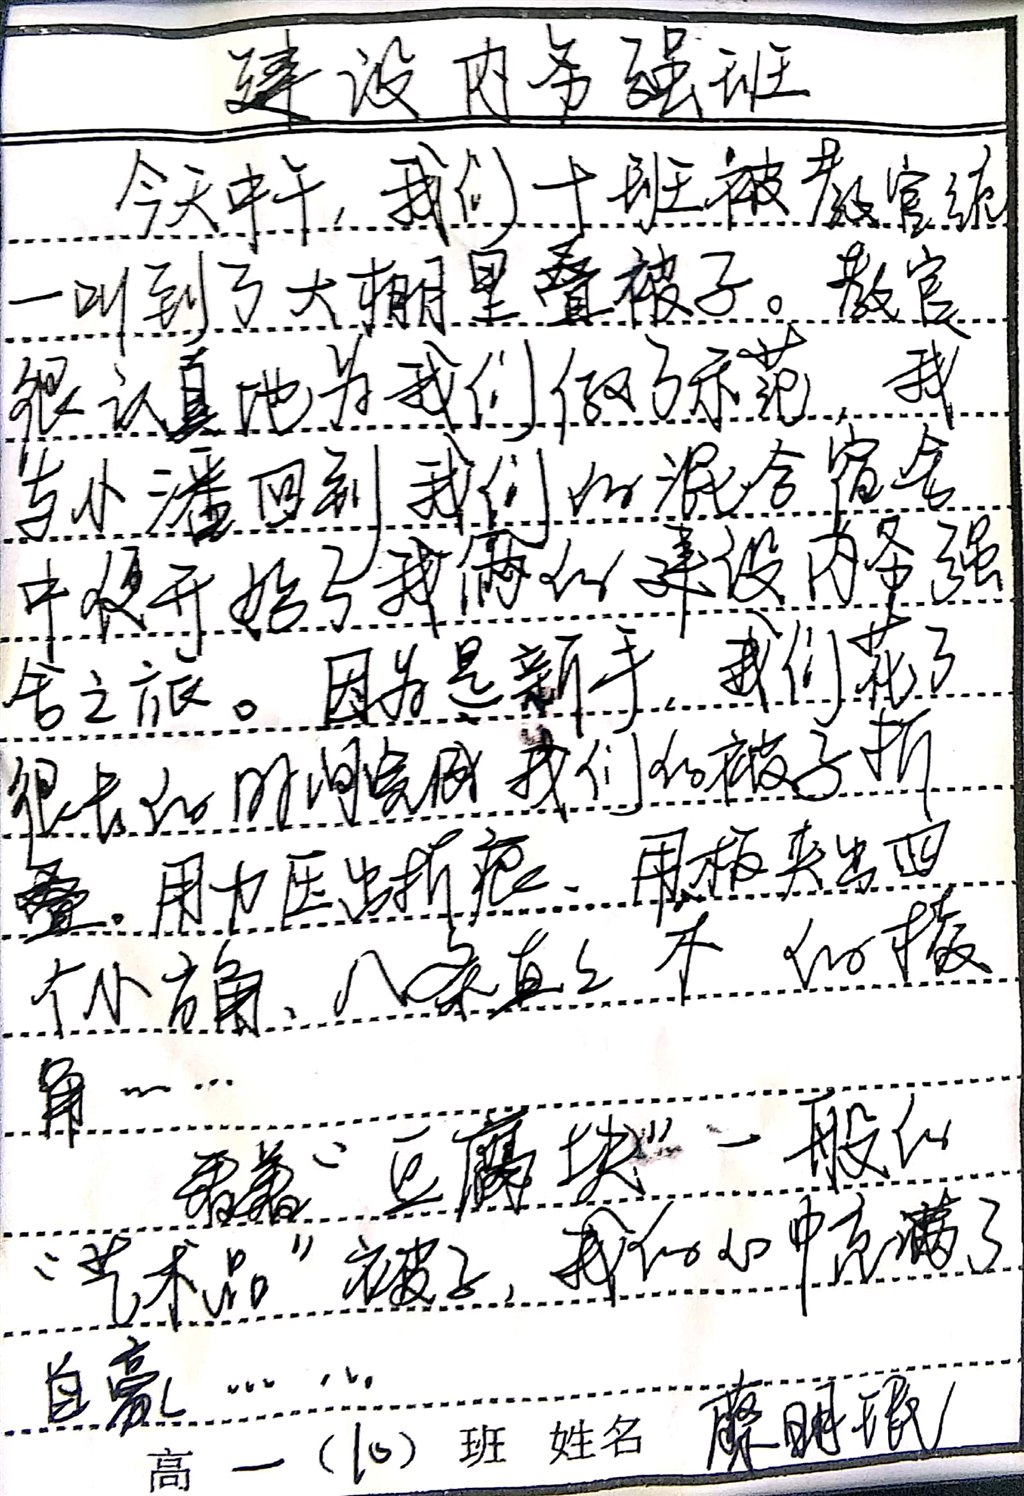 建设内务强班
今天中午，我们十班被教官统
一叫到了大棚里叠被子。教官
很认真地为我们做了示范，我
与小潘回到我们的混合宿舍
中便开始了我俩的建设内务强
舍之旅。因为是新手，我们花了
很长的时间完成我们的被子折
叠。用力压出折痕、用板夹出四
个小方角、八条直 的棱
角……
看着“豆腐块”一般的
“艺术品”被子，我的心中充满了
自豪……
高一（10）班 姓名 明珉